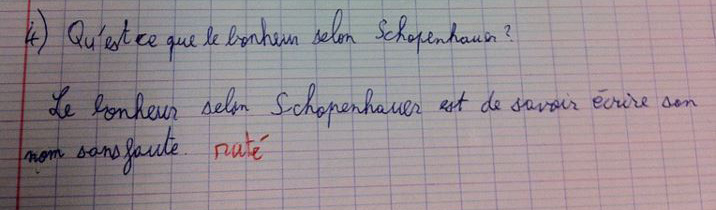 4) Qu'est ce que le bonheur selon Schopenhauer ?
Le bonheur selon Schopenhauer est de savoir écrire son
nom sans faute. ruté